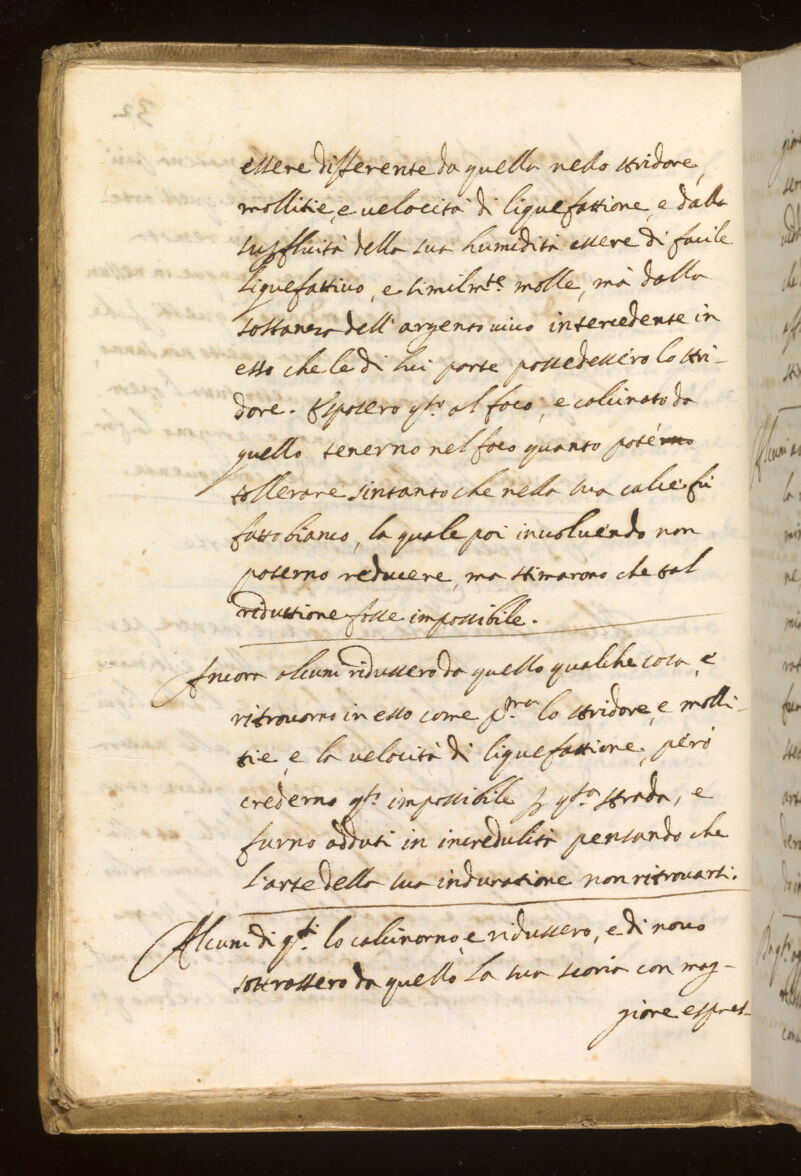 essere differente da quella nello stridore,
mollitie, e velocità di liquefattione, e dalla
supfluità della sua humidità essere di facile
liquefattivo, e similmte molle, mà dalla
sostanza dell'argento vivo intercedente in
esso che le di lui parte possedessero lo stri-
dore. Esposero qto al foco, e calcinato da
quello tenerno nel foco quanto potérno
tollerare sintanto che nella sua calcie fù
fatto bianco, la quale poi involuendo non
poterno reducere, ma stimarono che tal
riduttione fosse impossibile.
Ancora alcuni ridussero da quello qualche cosa, e
ritrovorno in esso come pma lo stridore, e molli-
tie, e la velocità di liquefattione, però
crederno qto impossibile p qta strada, e
furno addutti in incredulità pensando che
l'arte della sua induratione non ritrovarsi.
Alcuni di qti lo calcinorno, e ridussero, e di novo
sottrassero da quello la sua scoria con mag-
giore espres-